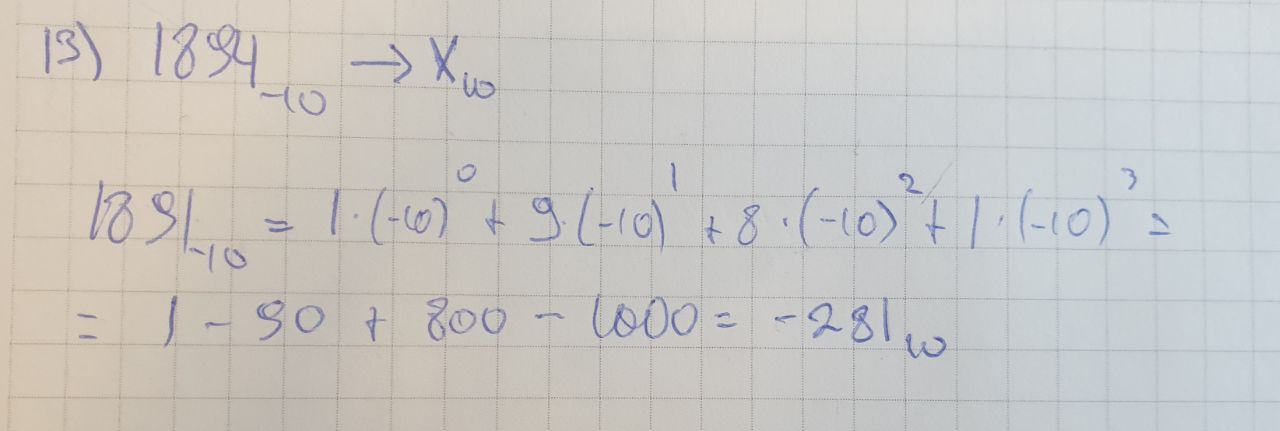 13) 1894₋₁₀ → X₁₀
1891₋₁₀ = 1·(-10)⁰ + 9·(-10)¹ + 8·(-10)² + 1·(-10)³ =
= 1 - 90 + 800 - 1000 = -281₁₀